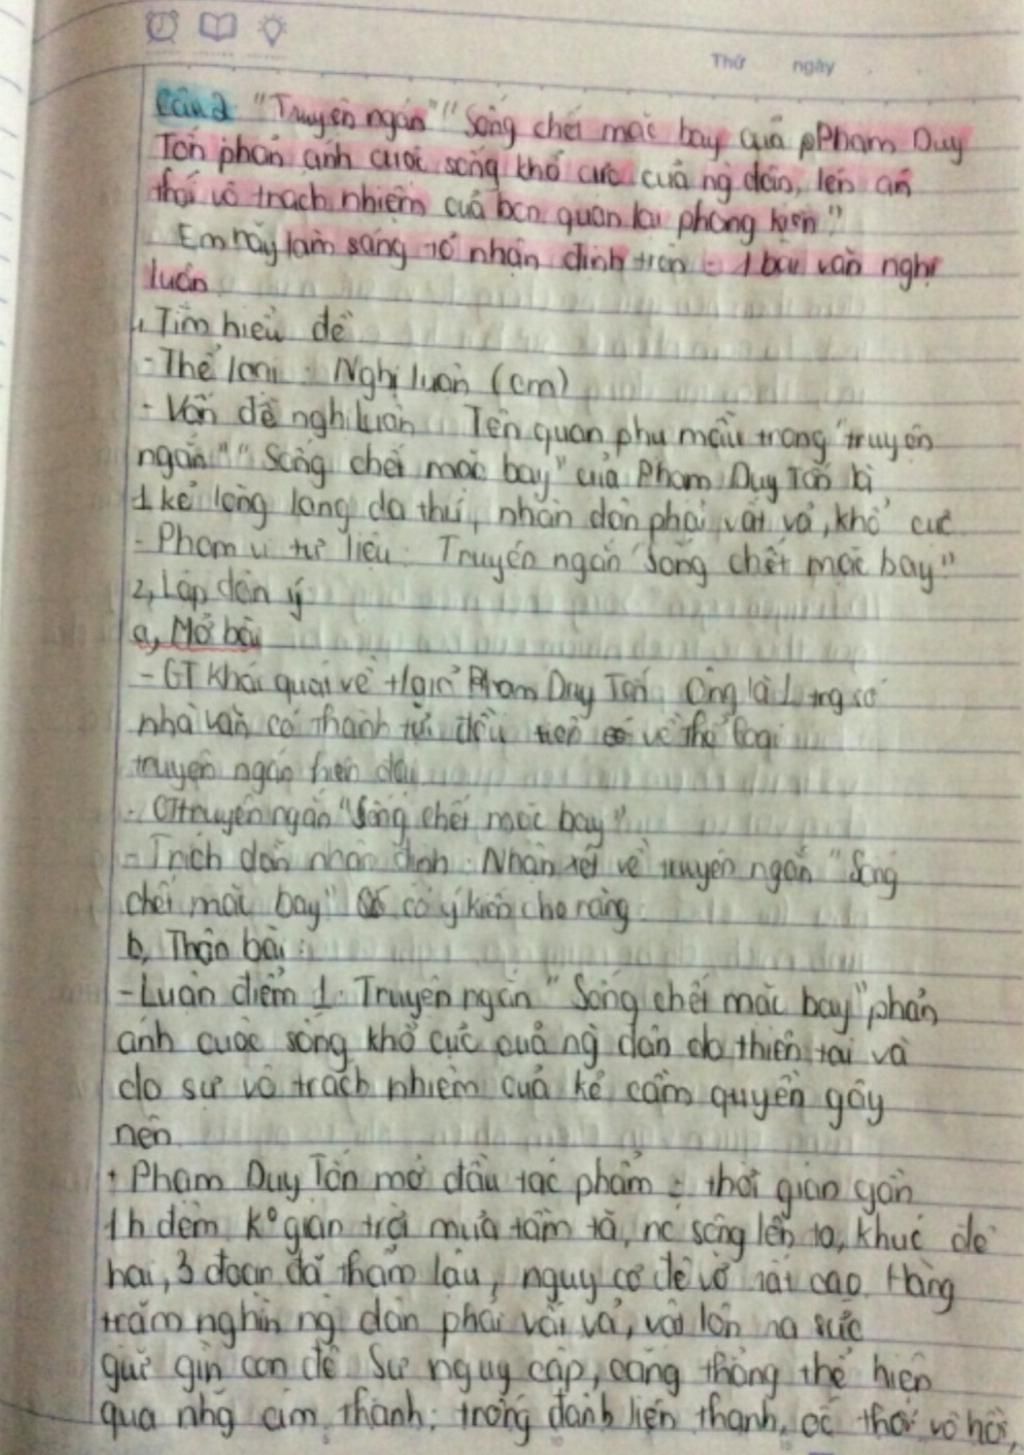 Thứ ngày
Câu 2 "Truyện ngắn" "Sống chết mặc bay của Phạm Duy
Tốn phản ánh cuộc sống khổ cực của ng dân, lên án
thói vô trách nhiệm của bọn quan lại phong kiến"
Em hãy làm sáng tỏ nhận định trên = 1 bài văn nghị
luận
1, Tìm hiểu đề
- Thể loại: Nghị luận (cm)
- Vấn đề nghị luận Tên quan phụ mẫu trong "truyện
ngắn" "Sống chết mặc bay" của Phạm Duy Tốn là
1 kẻ lòng lang dạ thú, nhân dân phải vất vả, khổ cực
- Phạm vi tư liệu: Truyện ngắn "Sống chết mặc bay"
2, Lập dàn ý
a, Mở bài
- GT khái quát về t/giả Phạm Duy Tốn Ông là 1 trg số
nhà văn có thành tựu đầu tiên về thể loại
truyện ngắn hiện đại
- GT truyện ngắn "Sống chết mặc bay"
- Trích dẫn nhận định: Nhận xét về truyện ngắn "Sống
chết mặc bay" có ý kiến cho rằng:
b, Thân bài:
- Luận điểm 1: Truyện ngắn "Sống chết mặc bay" phản
ánh cuộc sống khổ cực của ng dân do thiên tai và
do sự vô trách nhiệm của kẻ cầm quyền gây
nên
+ Phạm Duy Tốn mở đầu tác phẩm = thời gian gần
1h đêm k° gian trời mưa tầm tã, nc sông lên to, khúc đê
hai, 3 đoạn đã thẩm lậu, nguy cơ đê vỡ rất cao. Hàng
trăm nghìn ng dân phải vất vả, vật lộn ra sức
giữ gìn con đê Sự nguy cấp, căng thẳng thể hiện
qua nhg âm thanh: trống đánh liên thanh, ốc thổi vô hồi,